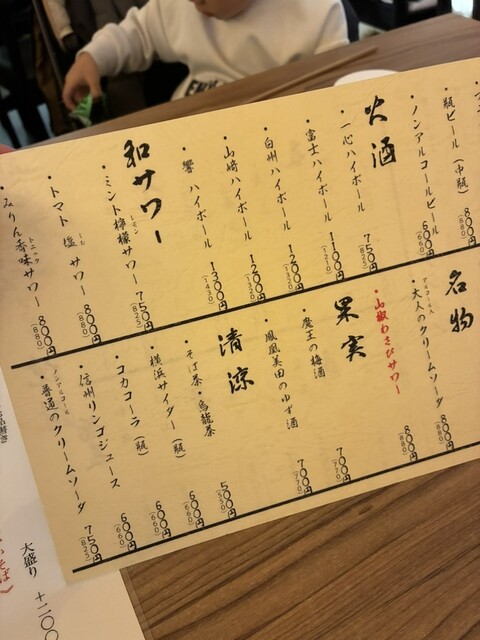 ・瓶ビール（中瓶） 800円 (880)
・ノンアルコールビール 600円 (660)
火酒
・一心ハイボール 750円 (825)
・富士ハイボール 1100円 (1210)
・白州ハイボール 1200円 (1320)
・山崎ハイボール 1200円 (1320)
・響 ハイボール 1300円 (1430)
和サワー
・ミント檸檬サワー 750円 (825)
レモン
・トマト 塩 サワー 800円 (880)
・みりん香味サワー 800円 (880)
トニック
名物
・大人のクリームソーダ 800円 (880)
アルコール入
・山椒わさびサワー 800円 (880)
果実
・魔王の梅酒 700円 (770)
・鳳凰美田のゆず酒 700円 (770)
清涼
・そば茶・烏龍茶 500円 (550)
・横浜サイダー（瓶） 600円 (660)
・コカコーラ（瓶） 600円 (660)
・信州リンゴジュース 600円 (660)
・普通のクリームソーダ 750円 (825)
ノンアルコール
大盛り 十二〇〇
そば）